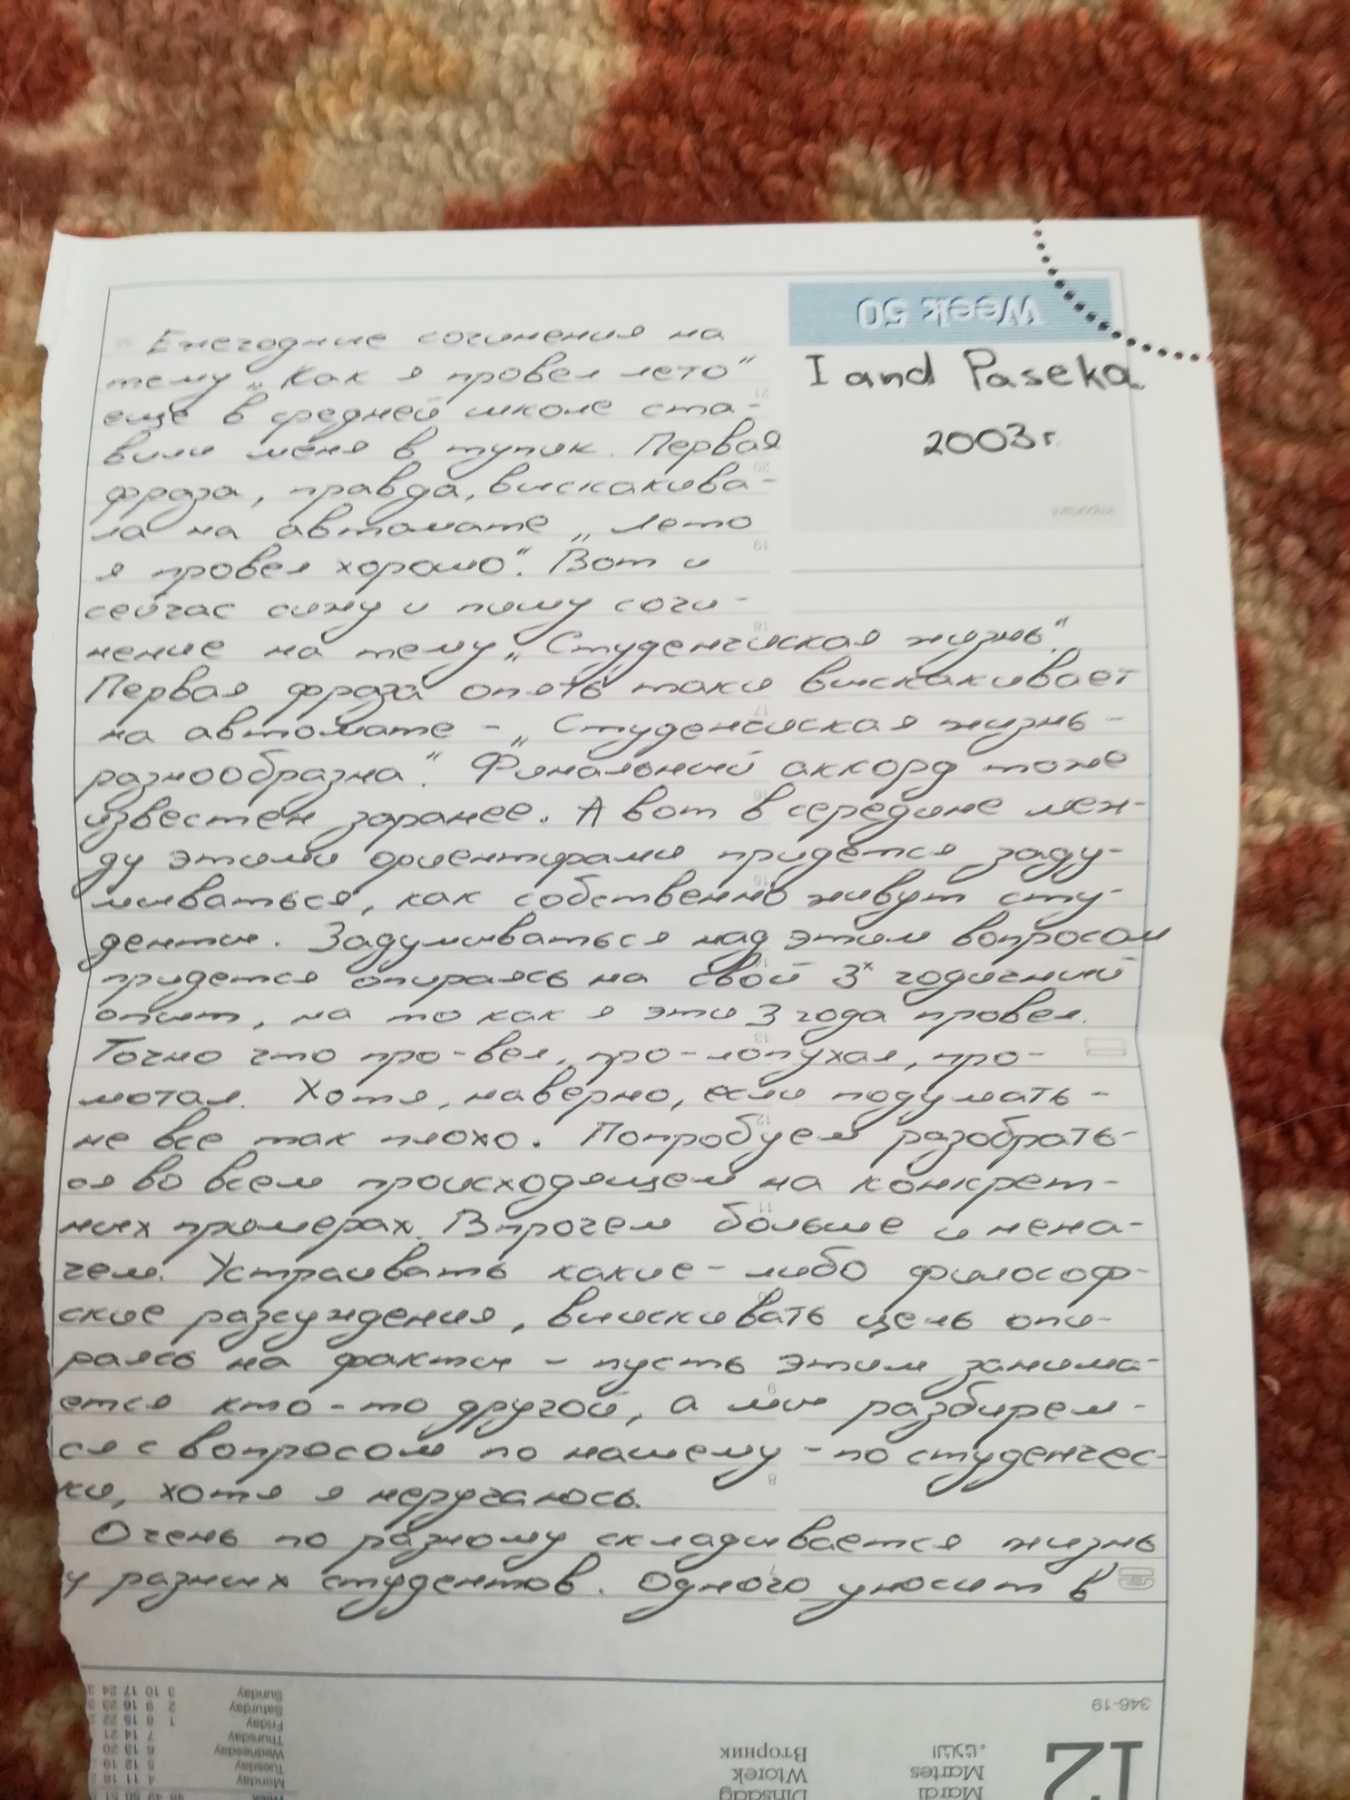 Week 50
I and Paseka
2003г.
Ежегодние сочинения на
тему „Как я провел лето“
еще в средней школе ста-
вили меня в тупик. Первая
фраза, правда, выскакива-
ла на автомате „лето
я провел хорошо“. Вот и
сейчас сижу и пишу сочи-
нение на тему „Студенчиская жизнь“.
Первая фраза опять таки выскакивает
на автомате - „Студенчиская жизнь -
разнообразна“. Финальный аккорд тоже
известен заранее. А вот в середине меж-
ду этими ориентирами придется заду-
мываться, как собственно живут сту-
денты. Задумываться над этим вопросом
придется опираясь на свой 3х годичный
опыт, на то как я эти 3 года провел.
Точно что про-вел, про-лопухал, про-
мотал. Хотя, наверно, если подумать -
не все так плохо. Попробуем разобрать-
ся во всем происходящем на конкрет-
ных примерах. Впрочем больше и нена-
чем. Устраивать какие-либо философ-
ские разсуждения, выискивать цель опи-
раясь на факты - пусть этим занима-
ется кто-то другой, а мы разбирем-
ся с вопросом по нашему - по студенчес-
ки, хотя я неручаюсь.
Очень по разному складивается жизнь
у разных студентов. Одного уносит в
346-19
12
Mardi
Martes
الثلاثاء
Dinsdag
Wtorek
Вторник
Week 48 49 50 51
Monday 4 11 18
Tuesday 5 12 19
Wednesday 6 13 20
Thursday 7 14 21
Friday 1 8 15 22
Saturday 2 9 16 23
Sunday 3 10 17 24